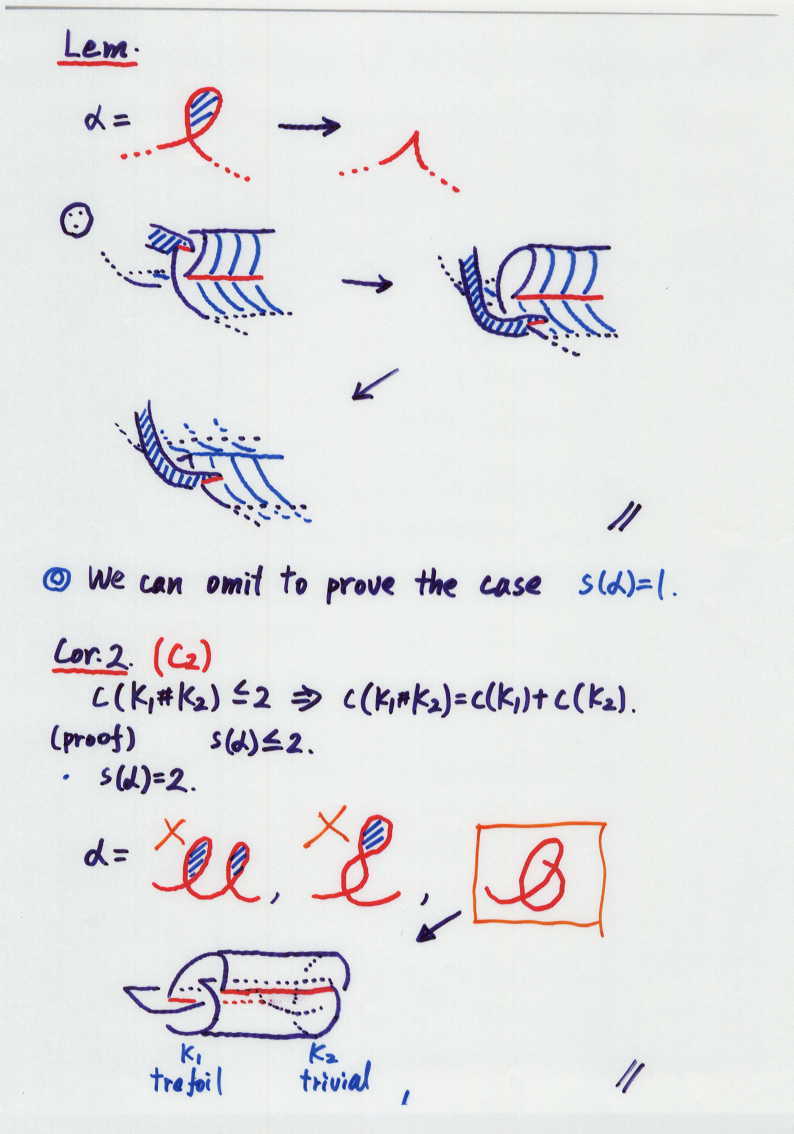 Lem.
α = →
◎ We can omit to prove the case s(α)=1.
Cor. 2. (C₂)
c(K₁#K₂) ≤ 2 ⇒ c(K₁#K₂) = c(K₁) + c(K₂).
(proof) s(α) ≤ 2.
· s(α)=2.
α = , ,
K₁ K₂
trefoil trivial ,
//